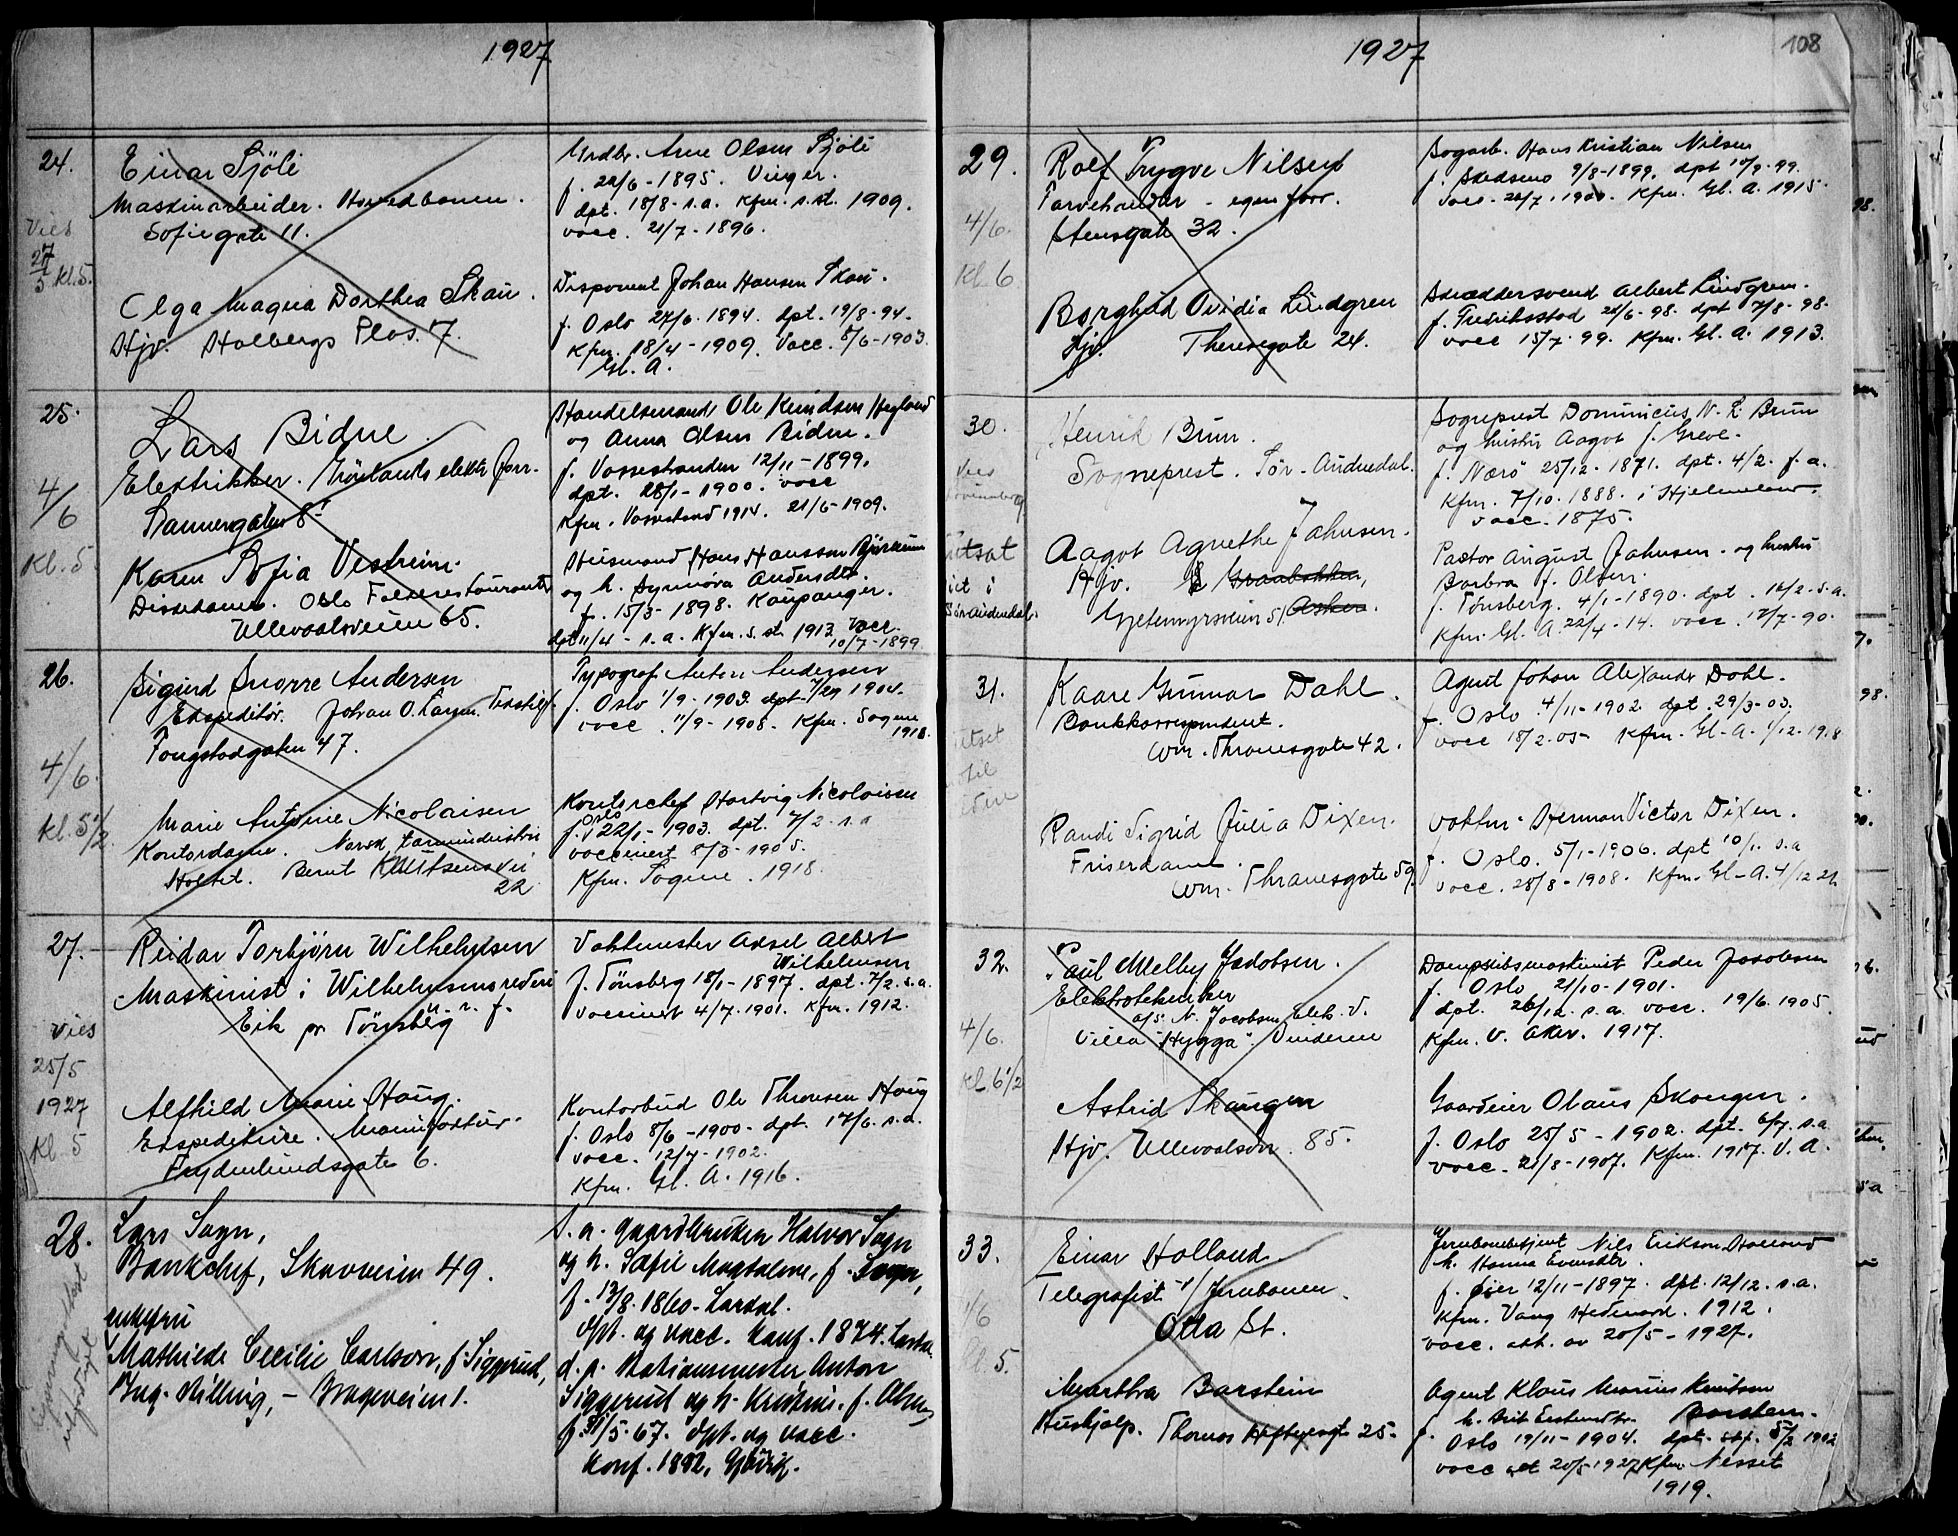 1927
24.
Vies
27/5 Kl. 5.
Einar Sjöli
Maskinarbeider. Hovedbanen.
Sofiegate 11.
Olga Magna Dorthea Skau.
Hjv. Holbergs Plas. 7.
Arne Olsen Sjöli
f. 22/6 - 1895. Vinger.
dpt. 18/8 - s.a. Kfm. s.st. 1909.
vacc. 21/7 - 1896.
Disponent Johan Hansen Skau.
f. Oslo 27/6. 1894. dpt. 19/8 - 94.
Kfm. 18/4 - 1909. Vacc. 8/6 - 1903.
Gl. A.
25.
4/6
Kl. 5.
Lars Bidne.
Elektrikker. Grönlands elektr. forr.
Sannergaten 8'
Karen Sofia Vestreim.
Diskedame. Oslo
Ullevaalsveien 65.
Handelsmand Ole Knudsen
og Anna Olsen Bidne.
f. Vossestranden 12/11 - 1899.
dpt. 28/1 - 1900. vacc
Kfm. Vossestrand 1914. 21/6 - 1909.
Husmand Hans Hansson
og h. Synnøva Andersdtr.
f. 15/3 - 1898. Kaupanger.
dpt 11/4 - s.a. Kfm. s. st. 1913 vacc.
10/7 - 1899
26.
4/6.
Kl. 5 1/2
Sigurd Snorre Andersen
Ekspeditör. Johan O. Larsen.
Tougstadgaten 47.
Marie Antonie Nicolaisen
Kontordame. Norsk tarmindustri
Holtet. Bernt Knutsensvei
22
Typograf Anton Andersen
f. Oslo 1/9 - 1903. dpt. 1904.
vacc. 11/9 - 1908. Kfm. Sogne
1918.
Kontorchef Hartvig Nicolaisen
f. Oslo 22/1 - 1903. dpt. 7/2 - s.a
vaccinert 8/3 - 1905.
Kfm. Sogne. 1918.
27.
Vies
25/5
1927
Kl. 5
Reidar Torbjörn Wilhelmsen
Maskinist i Wilhelmsens rederi
Eik pr Tönsberg
Alfhild Marie Haug.
Ekspeditrice.
Frydenlundsgate 6.
Vaktmester Aksel Albert
Wilhelmsen
f. Tönsberg 18/1 - 1897. dpt. 7/2. s.a.
vaccinert 4/7. 1901. Kfm. 1912.
Kontorbud Ole Thronsen Haug
f. Oslo 8/6 - 1900 - dpt. 17/6. s.a.
vacc. 12/7 - 1902.
Kfm. Gl. A. 1916.
28.
Lars Sogn,
Bankchef, Skovveien 49.
enkefru
Mathilde Cecilie Carlson, f. Siggerud,
- Brageveien 1.
S. a. gaardbruker Halvor Sogn
og h. Sofie Magdalene, f. Sogn,
f. 13/8. 1860 - Lardal.
dpt. og vacc. konf. 1874.
d. a. Stationsmester Anton
Siggerud og h. Kristine. f. Olsen
f. 31/5. 67. dpt. og vacc.
konf. 1882, Gjövik.
1927
108
29.
4/6.
Kl. 6
Rolf Trygve Nilsen
Farvehandler - egen forr.
Stensgate 32.
Borghild Ovidia Lindgren
Hjv. Theresegate 24.
Hans Kristian Nilsen
f. Skedsmo 9/8 - 1899. dpt 10/9 - 99.
vacc. 1900. Kfm. Gl. A. 1915.
Skræddersvend Albert Lindgren.
f. Fredriksstad 28/6 - 98. dpt 7/8 - 98.
vacc 15/7. 99. Kfm. Gl. A. 1913.
30.
Vies
Henrik Brun.
Sogneprest. Sör-Audnedal.
Aagot Agnethe Johnsen.
Hjv. Granbakken,
Gjetemyrsveien 51. Asker.
Sogneprest Dominicus N. S. Brun
og hustru Aagot f. Greve.
f. Nærö 25/12. 1871. dpt. 4/2. f. a.
Kfm. 7/10. 1888. i Hjelmeland.
vacc. 1875.
Pastor August Johnsen. og hustru
Barbra f. Olsen.
f. Tönsberg. 4/1 - 1890. dpt. 16/2. s.a.
Kfm. Gl. A. 22/4 - 14. vacc. 12/7 - 90.
31.
Kaare Gunnar Dahl.
Bankkorrespondent.
Wm. Thranesgate 42.
Randi Sigrid Julia Dixen.
Friserdame.
Wm. Thranesgate 59.
Agent Johan Alexander Dahl.
f. Oslo 4/11 - 1902. dpt. 29/3 - 03.
vacc 18/2. 05 - Kfm. Gl - A. 1/12. 1918
Herman Victor Dixen.
f. Oslo. 5/1 - 1906. dpt 10/1. s.a
vacc. 28/8 - 1908. Kfm. Gl - A. 4/12 21.
32.
4/6.
Kl. 6 1/2
Paul Melby Jacobsen.
Elektrotekniker
a/s. N. Jacobsen elek. V.
Villa "Hygga". Vinderen
Astrid Skaugen
Hjv. Ullevoalsvn. 85.
Dampskibsmaskinist Peder Jacobsen
f. Oslo 21/10 - 1901.
dpt. 26/12. s.a. vacc. 19/6. 1905.
Kfm. V. Aker. 1917.
Gaardeier Olaus Skaugen.
f. Oslo 25/5 - 1902. dpt. 6/7. s.a
vacc. 21/8 - 1907. Kfm. 1917. V. A.
33.
Kl. 5.
Einar Holland.
Telegrafist v/ Jernbanen.
Otta St.
Martha Barstein
Hushjelp. Thomas Heftyesgt 25.
Jernbanebetjent Nils Erikson Holland
f. Øier 12/11 - 1897. dpt. 12/12. s.a.
Kfm. Vang Hedmark. 1912.
vacc. att. av 20/5 - 1927.
Agent Klaus Marius Knutsen
Barstein.
f. Oslo 19/11 - 1904. dpt. 5/2 1902
vacc att 20/5 1927 Kfm. Nesset
1919.